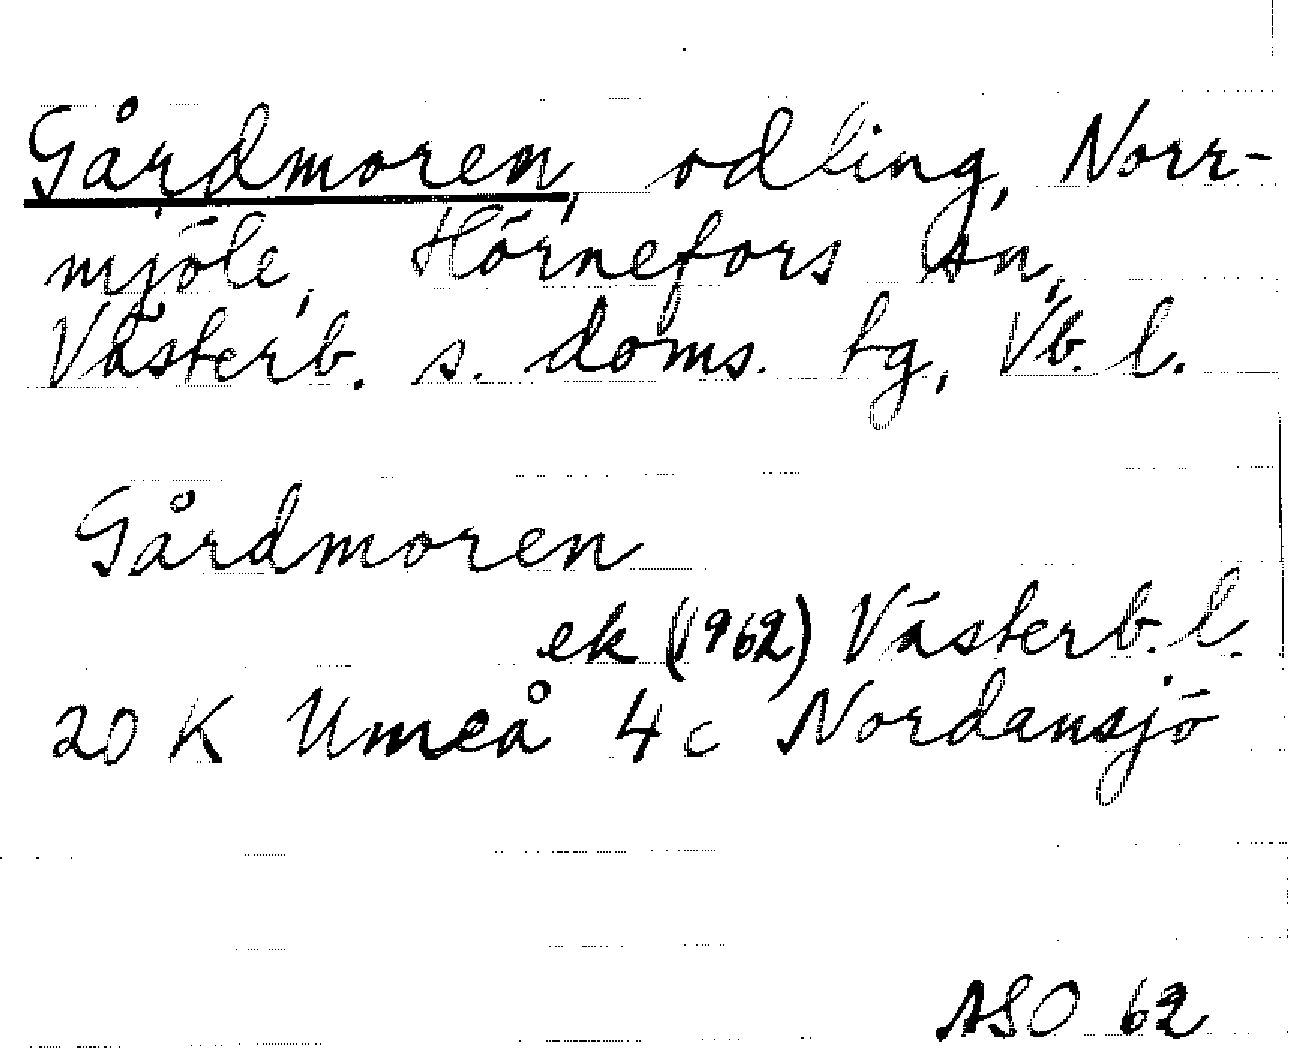 Gårdmoren, odling, Norr-
mjöle, Hörnefors sn,
Västerb. s. doms. tg, Vb. l.
Gårdmoren
ek (1962) Västerb. l.
20 K Umeå 4c Nordansjö
ASO 62